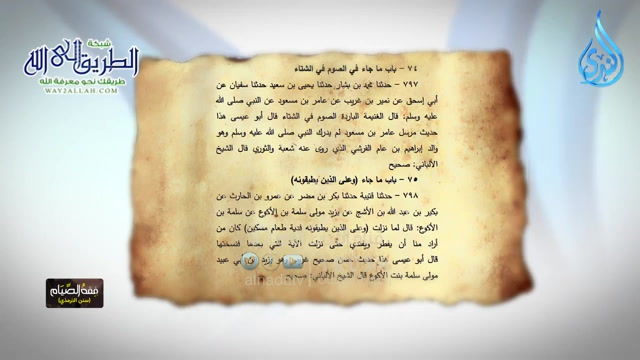 شبكة
الطريق إلى الله
طريقك نحو معرفة الله
WAY2ALLAH.COM
الندى
٧٤ - باب ما جاء في الصوم في الشتاء
٧٩٧ - حدثنا محمد بن بشار حدثنا يحيى بن سعيد حدثنا سفيان عن
أبي إسحق عن نمير بن غريب عن عامر بن مسعود عن النبي صلى الله
عليه وسلم، قال الغنيمة الباردة الصوم في الشتاء قال أبو عيسى هذا
حديث مرسل عامر بن مسعود لم يدرك النبي صلى الله عليه وسلم وهو
والد إبراهيم بن عامر القرشي الذي روى عنه شعبة والثوري قال الشيخ
الألباني: صحيح
٧٥ - باب ما جاء (وعلى الذين يطيقونه)
٧٩٨ - حدثنا قتيبة حدثنا بكر بن مضر عن عمرو بن الحارث عن
بكير بن عبد الله بن الأشج عن يزيد مولى سلمة بن الأكوع عن سلمة بن
الأكوع: قال لما نزلت (وعلى الذين يطيقونه فدية طعام مسكين) كان من
أراد منا أن يفطر ويفتدي حتى نزلت الآية التي بعدها فنسختها
قال أبو عيسى هذا حديث حسن صحيح غريب وهو يزيد بن أبي عبيد
مولى سلمة بنت الأكوع قال الشيخ الألباني: صحيح
فقه الصيام
(سنن الترمذي)